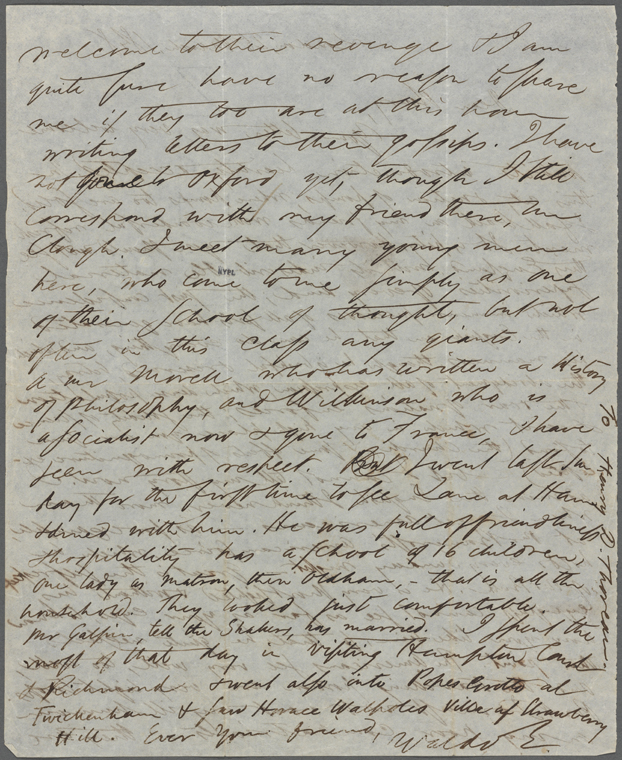 welcome to their revenge & I am
quite sure have no reason to spare
me if they too are at this hour
writing letters to their gossips. I have
not to Oxford yet, though I still
correspond with my friend there, Mr
Clough. I meet many young men
here, who come to me simply as one
of their school of thought, but not
often in this class any giants.
A Mr Morell who has written a History
of Philosophy, and Wilkinson who is
a socialist now & gone to France, I have
seen with respect. I went last Sun
day for the first time to see Lane at Ham
& dined with him. He was full of friendliness
& hospitality has a school of 16 children,
one lady as matron, then Oldham, - that is all the
household. They looked just comfortable.
Mr Galpin, tell the Shakers, has married. I spent the
most of that day in visiting Hampton Court
& Richmond & went also into Popes Grotto at
Twickenham & saw Horace Walpoles Villa of Strawberry
Hill. Ever your friend, Waldo E.
To Henry D. Thoreau.
NYPL